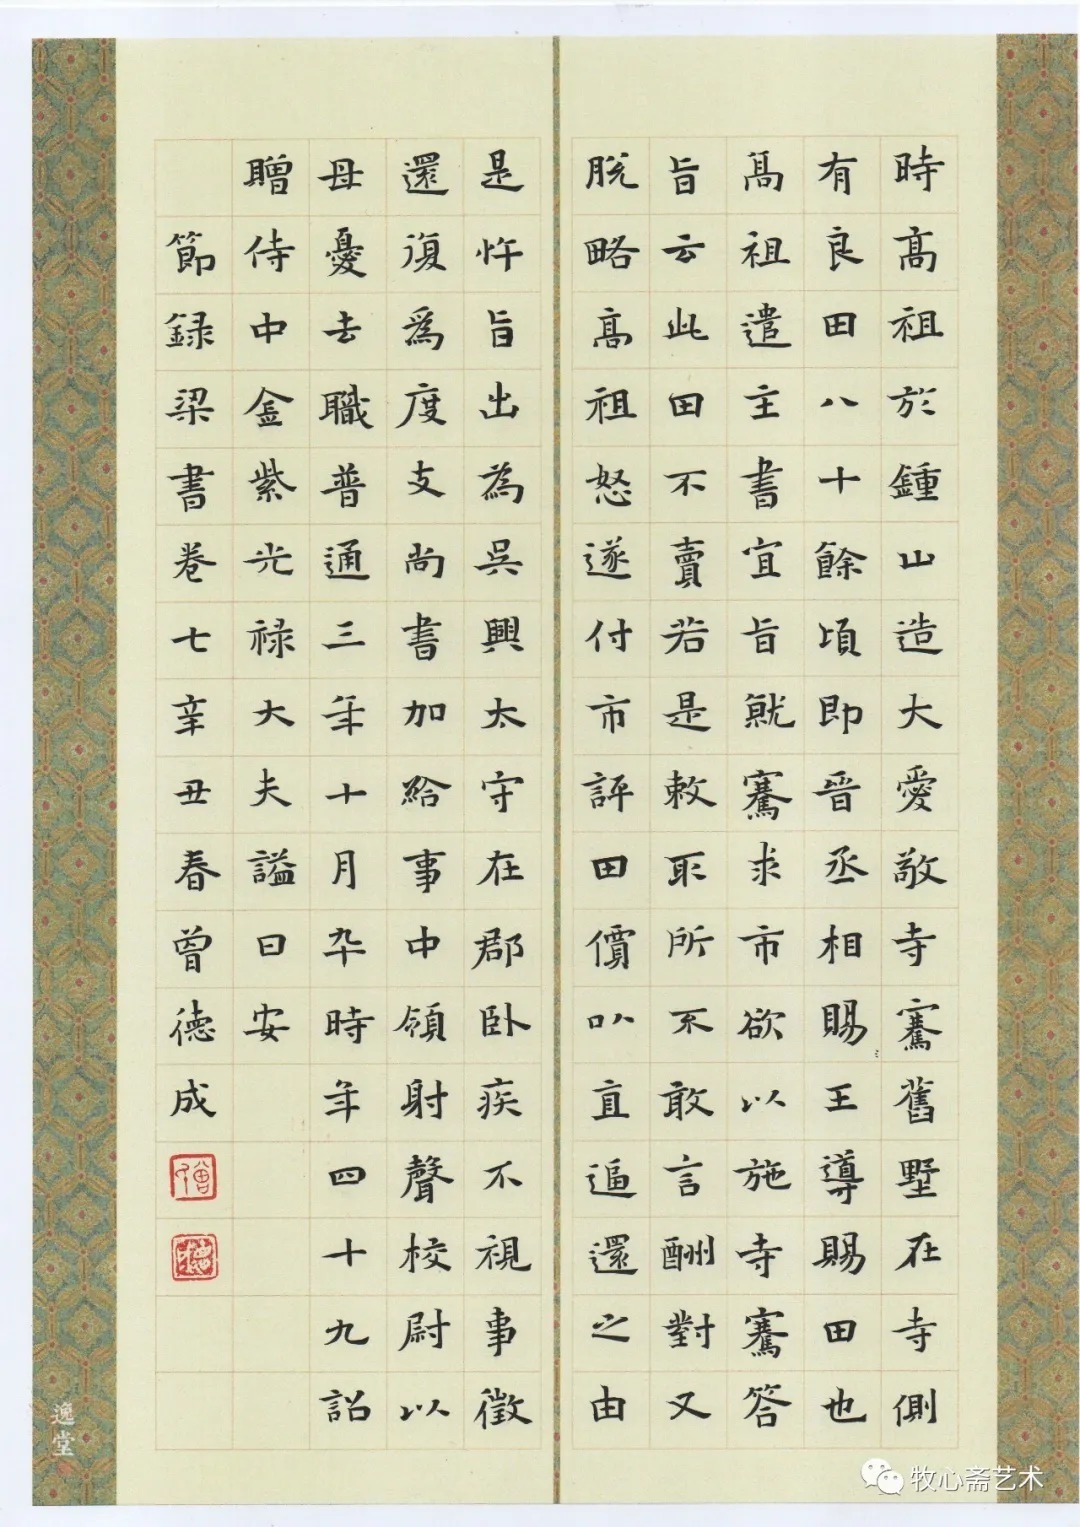 時高祖於鍾山造大愛敬寺騫舊墅在寺側
有良田八十餘頃即晋丞相賜王導賜田也
高祖遣主書宣旨就騫求市欲以施寺騫答
旨云此田不賣若是敕取所不敢言酬對又
脱略高祖怒遂付市評田價以直逼還之由
是忤旨出為吳興太守在郡卧疾不視事徵
還復為度支尚書加給事中領射聲校尉以
母憂去職普通三年十月卒時年四十九詔
贈侍中金紫光禄大夫諡曰安
節録梁書卷七辛丑春曾德成
逸堂
牧心斋艺术